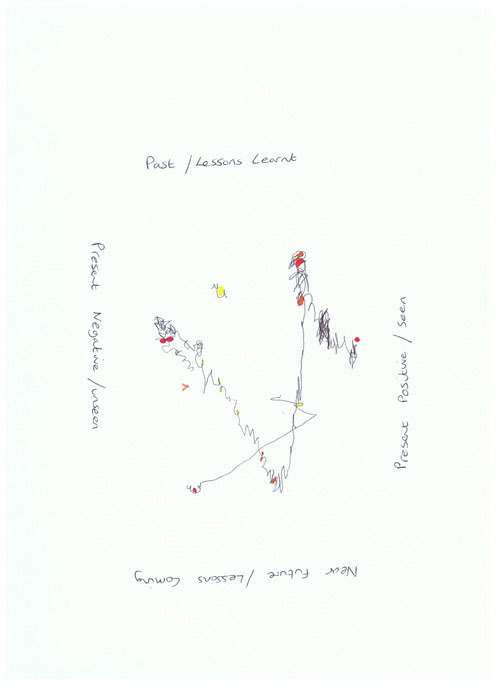 Past / Lessons Learnt
Present Negative / unseen
Present Positive / Seen
Near Future / Lessons Coming